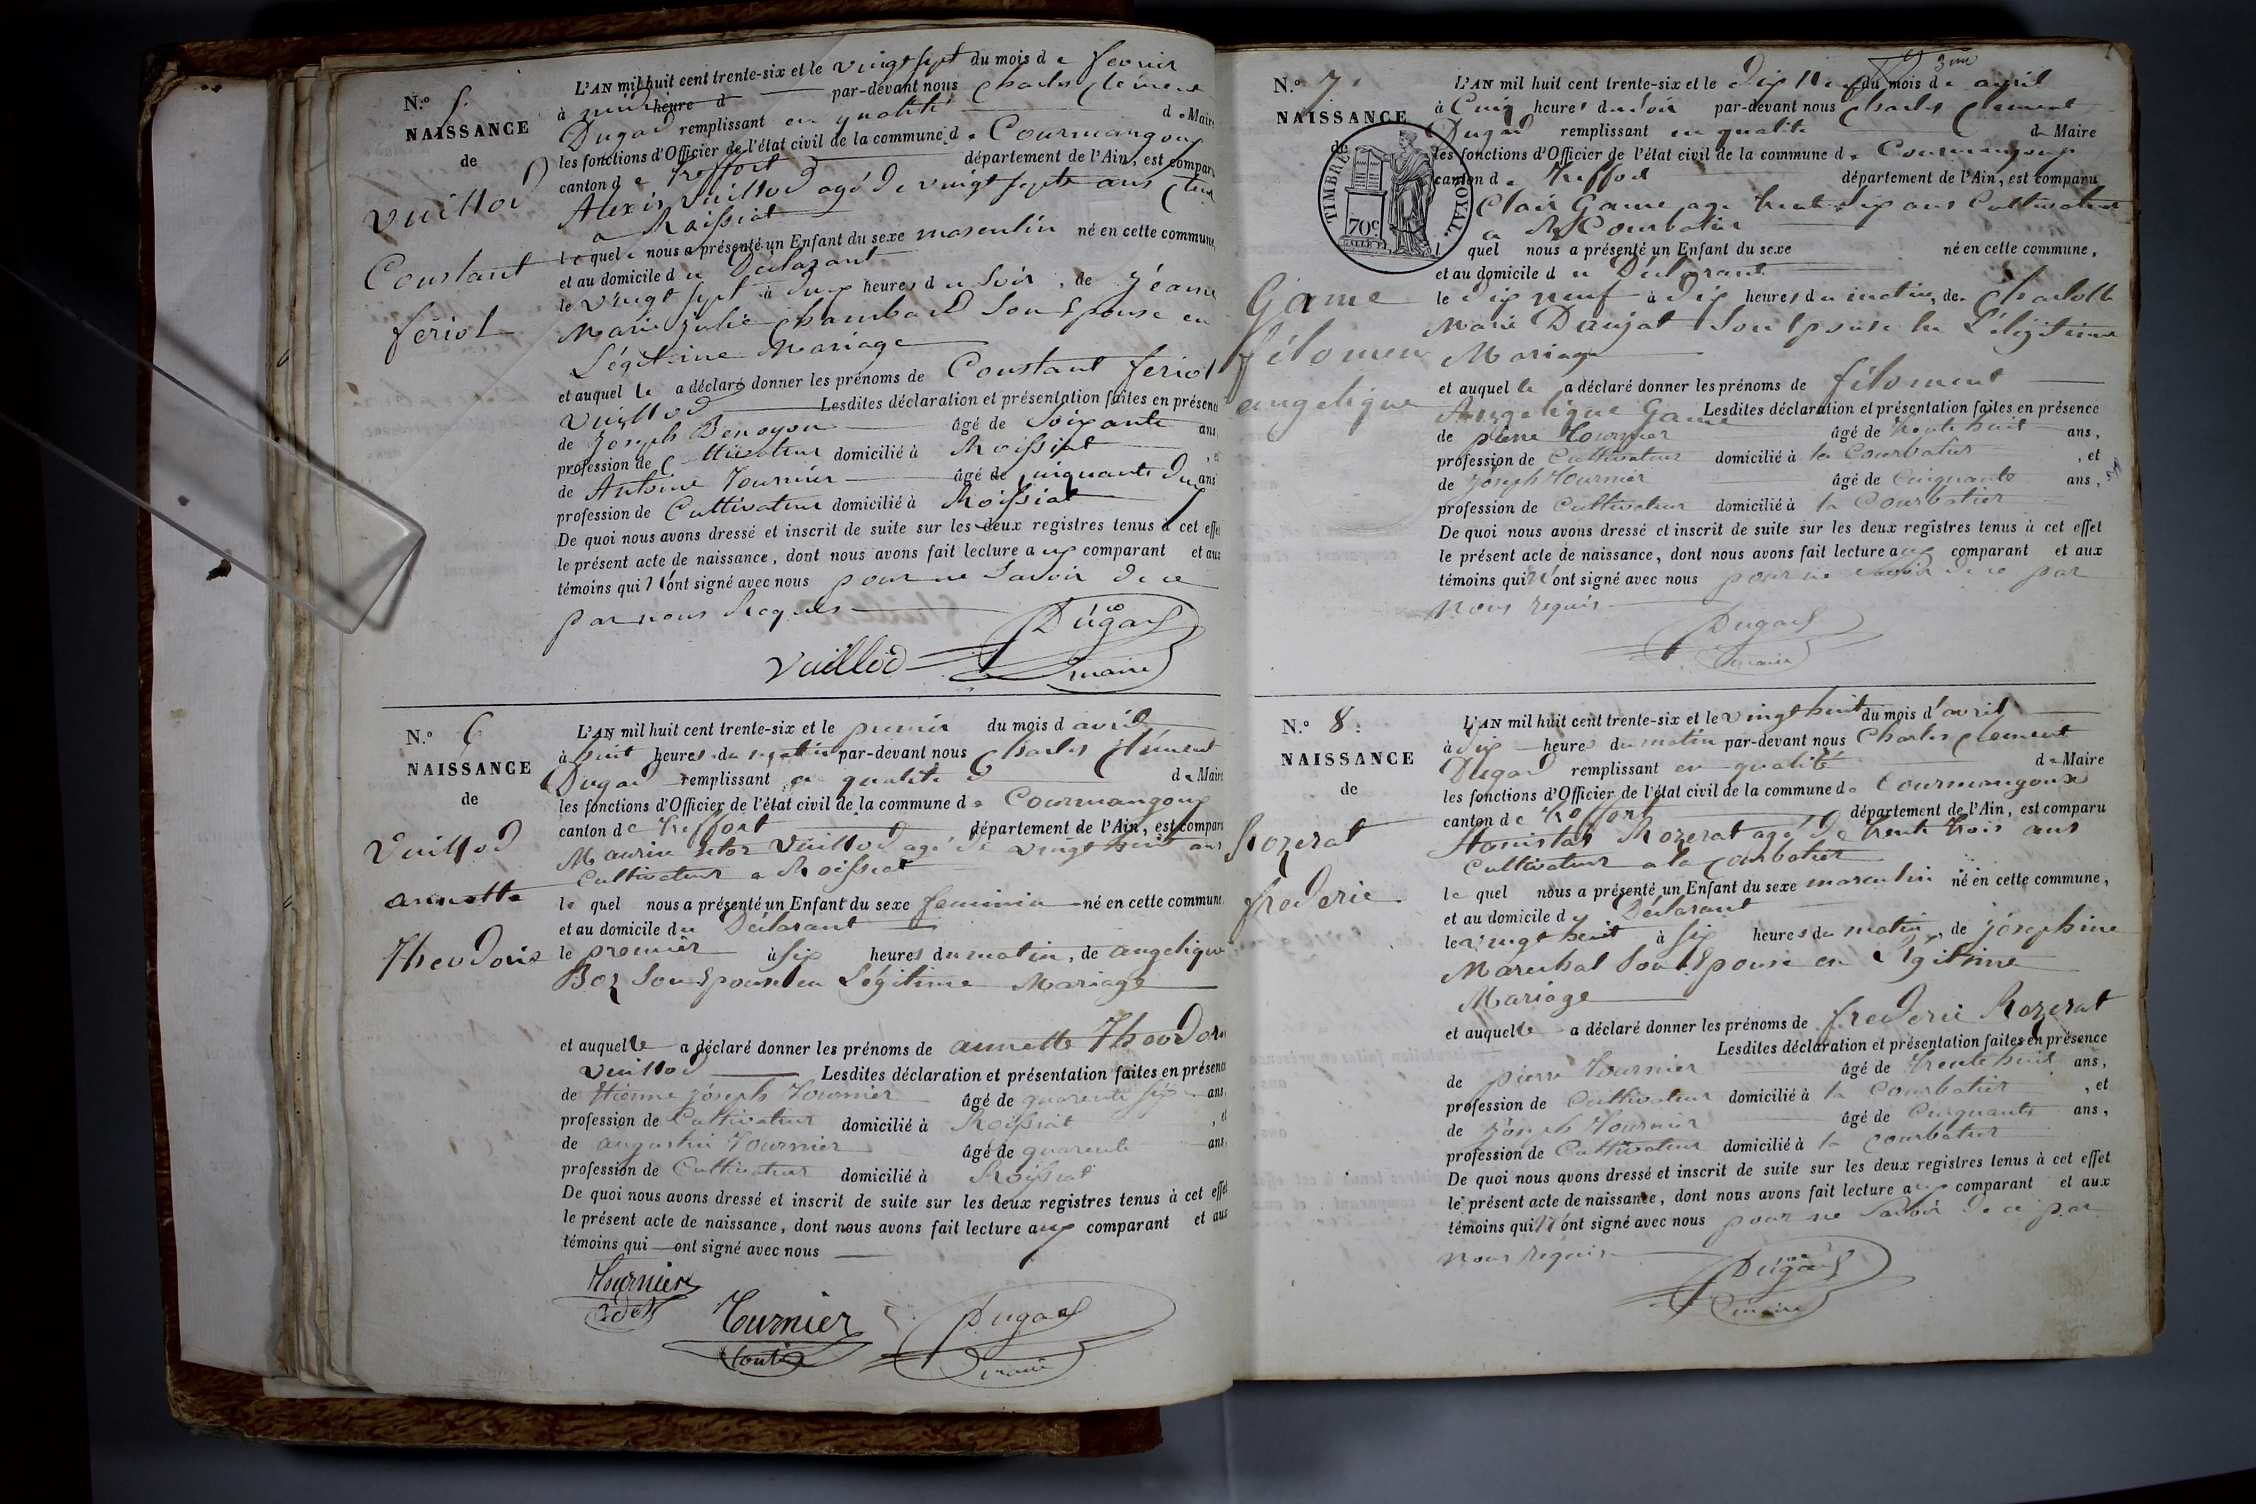 N.º 5.
NAISSANCE
de
Vuillod
Constant
feriol
L'AN mil huit cent trente-six et le vingt sept du mois de fevrier
à midi heure d par-devant nous Charles Clément
Dugad remplissant en qualité de Maire
les fonctions d'Officier de l'état civil de la commune de Courmangoux
canton de Treffort département de l'Ain, est comparu
Alexis Vuillod agé de vingt septe ans
a Roissiat
lequel nous a présenté un Enfant du sexe masculin né en cette commune,
et au domicile du Déclarant
le vingt sept à dix heures du soir, de Jéanne
Marie Julie Chambard Son Epouse en
Légitime Mariage
et auquel le a déclaré donner les prénoms de Constant feriol
Vuillod Lesdites déclaration et présentation faites en présence
de Joseph Benoyon âgé de Soixante ans,
profession de Cultivateur domicilié à Roissiat, et
de Antoine Tournier âgé de cinquante deux ans
profession de Cultivateur domicilié à Roissiat
De quoi nous avons dressé et inscrit de suite sur les deux registres tenus à cet effet
le présent acte de naissance, dont nous avons fait lecture aux comparant et aux
témoins qui n'ont signé avec nous pour ne Savoir de ce
par nous Requis
Vuillod Dugad
maire
N.º 6
NAISSANCE
de
Vuillod
annette
Theodoris
L'AN mil huit cent trente-six et le premier du mois d'avril
à huit heures du matin par-devant nous Charles Clément
Dugad remplissant en qualité de Maire
les fonctions d'Officier de l'état civil de la commune de Courmangoux
canton de Treffort département de l'Ain, est comparu
Maurice Vuillod agé de vingt huit ans
Cultivateur a Roissiat
le quel nous a présenté un Enfant du sexe feminin né en cette commune
et au domicile du Déclarant
le premier à six heures du matin, de angelique
Boz Son Epouse en Légitime Mariage
et auquelle a déclaré donner les prénoms de annette Theodoris
Vuillod Lesdites déclaration et présentation faites en présence
de Etienne Joseph Tournier âgé de quarente six ans,
profession de Cultivateur domicilié à Roissiat, et
de augustin Tournier âgé de quarente ans
profession de Cultivateur domicilié à Roissiat
De quoi nous avons dressé et inscrit de suite sur les deux registres tenus à cet effet
le présent acte de naissance, dont nous avons fait lecture aux comparant et aux
témoins qui ont signé avec nous
Tournier
Tournier Dugad
maire
N.º 7.
NAISSANCE
de
TIMBRE ROYAL.
70c
Game
félomene
angelique
L'AN mil huit cent trente-six et le dix neuf du mois de avril
à Cinq heures du Soir par-devant nous Charles Clement
Dugad remplissant en qualité de Maire
les fonctions d'Officier de l'état civil de la commune de Courmangoux
canton de Treffort département de l'Ain, est comparu
Clair Game age trente six ans Cultivateur
a la Courbatier
quel nous a présenté un Enfant du sexe né en cette commune,
et au domicile du Déclarant
le dix neuf à dix heures du matin, de Charlotte
Marie Daujat Son Epouse en Légitime
Mariage
et auquel le a déclaré donner les prénoms de féloment
Angelique Game Lesdites déclaration et présentation faites en présence
de pierre Tournier âgé de trente huit ans,
profession de Cultivateur domicilié à la Courbatier, et
de Joseph Tournier âgé de Cinquante ans,
profession de Cultivateur domicilié à la Courbatier
De quoi nous avons dressé et inscrit de suite sur les deux registres tenus à cet effet
le présent acte de naissance, dont nous avons fait lecture aux comparant et aux
témoins qui n'ont signé avec nous pour ne Savoir de ce par
Nous requis
Dugad
maire
N.º 8.
NAISSANCE
de
Rozerat
frederic
L'AN mil huit cent trente-six et le vingt huit du mois d'avril
à dix heures du matin par-devant nous Charles Clement
Dugad remplissant en qualité de Maire
les fonctions d'Officier de l'état civil de la commune de Courmangoux
canton de Treffort département de l'Ain, est comparu
Stanislas Rozerat agé de trente trois ans
Cultivateur a la Courbatier
le quel nous a présenté un Enfant du sexe masculin né en cette commune,
et au domicile du Déclarant
le vingt huit à six heures du matin, de joséphine
Marechal Son Epouse en Légitime
Mariage
et auquelle a déclaré donner les prénoms de frederic Rozerat
Lesdites déclaration et présentation faites en présence
de pierre Tournier âgé de trente huit ans,
profession de Cultivateur domicilié à la Courbatier, et
de Joseph Tournier âgé de Cinquante ans,
profession de Cultivateur domicilié à la Courbatier
De quoi nous avons dressé et inscrit de suite sur les deux registres tenus à cet effet
le présent acte de naissance, dont nous avons fait lecture aux comparant et aux
témoins qui n'ont signé avec nous pour ne Savoir de ce par
Nous requis
Dugad
maire